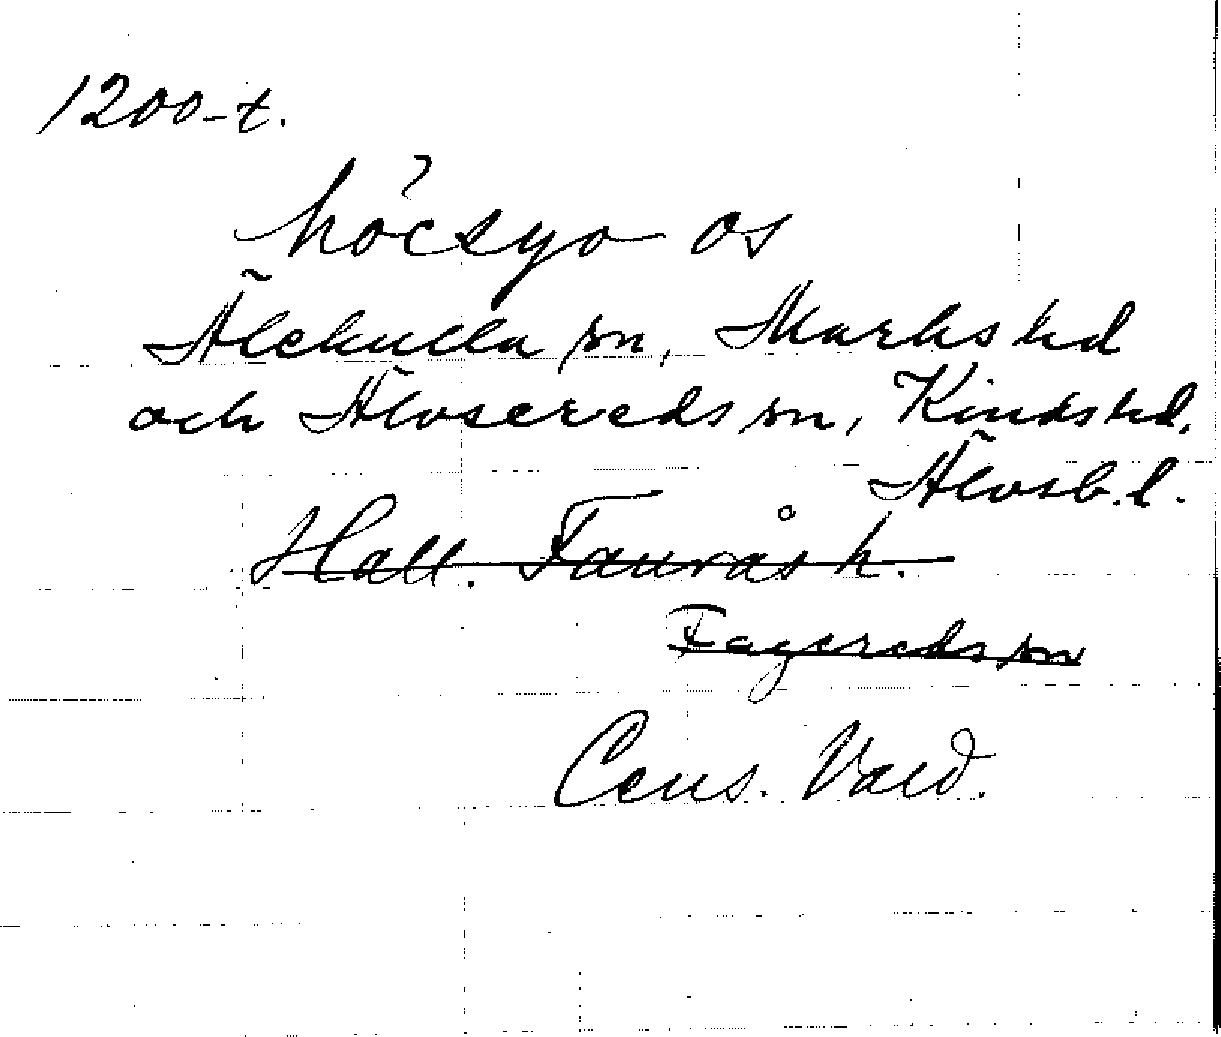 1200-t.
?
höcsyo os
Älekulla sn, Marks hd
och Älvsereds sn, Kinds hd,
Älvsb. l.
Hall. Faurås h.
Fagereds sn
Cens. Vald.